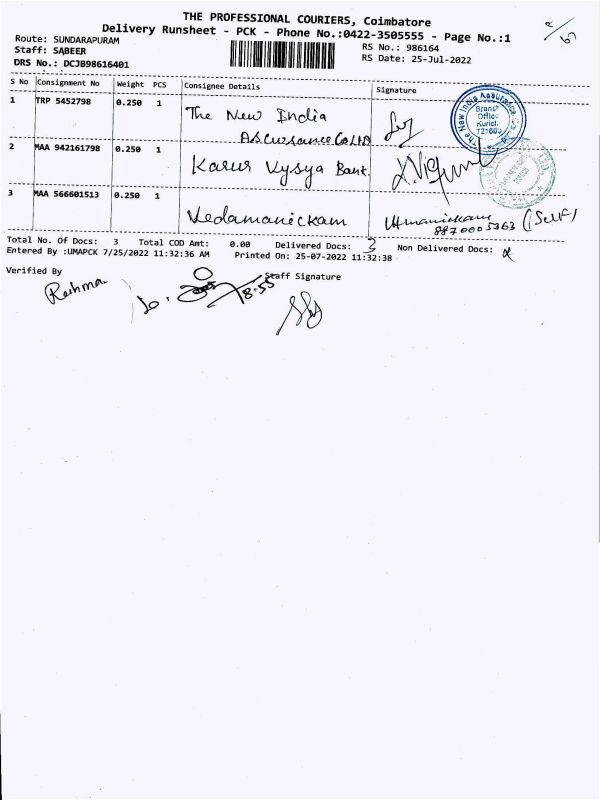 THE PROFESSIONAL COURIERS, Coimbatore
Delivery Runsheet - PCK - Phone No.:0422-3505555 - Page No.:1
Route: SUNDARAPURAM
Staff: SABEER
DRS No.: DCJB98616401
RS No.: 986164
RS Date: 25-Jul-2022
S No Consignment No Weight PCS Consignee Details Signature
1 TRP 5452798 0.250 1 The New India
Assurance Co Ltd
The New India Assurance
Branch
Office
Kurichi
721603
2 MAA 942161798 0.250 1 Karur Vysya Bank.
3 MAA 566601513 0.250 1 Vedamanickam
8870005363 (Self)
Total No. Of Docs: 3 Total COD Amt: 0.00 Delivered Docs: 3 Non Delivered Docs:
Entered By :UMAPCK 7/25/2022 11:32:36 AM Printed On: 25-07-2022 11:32:38
Verified By Staff Signature
Rahma
18.55